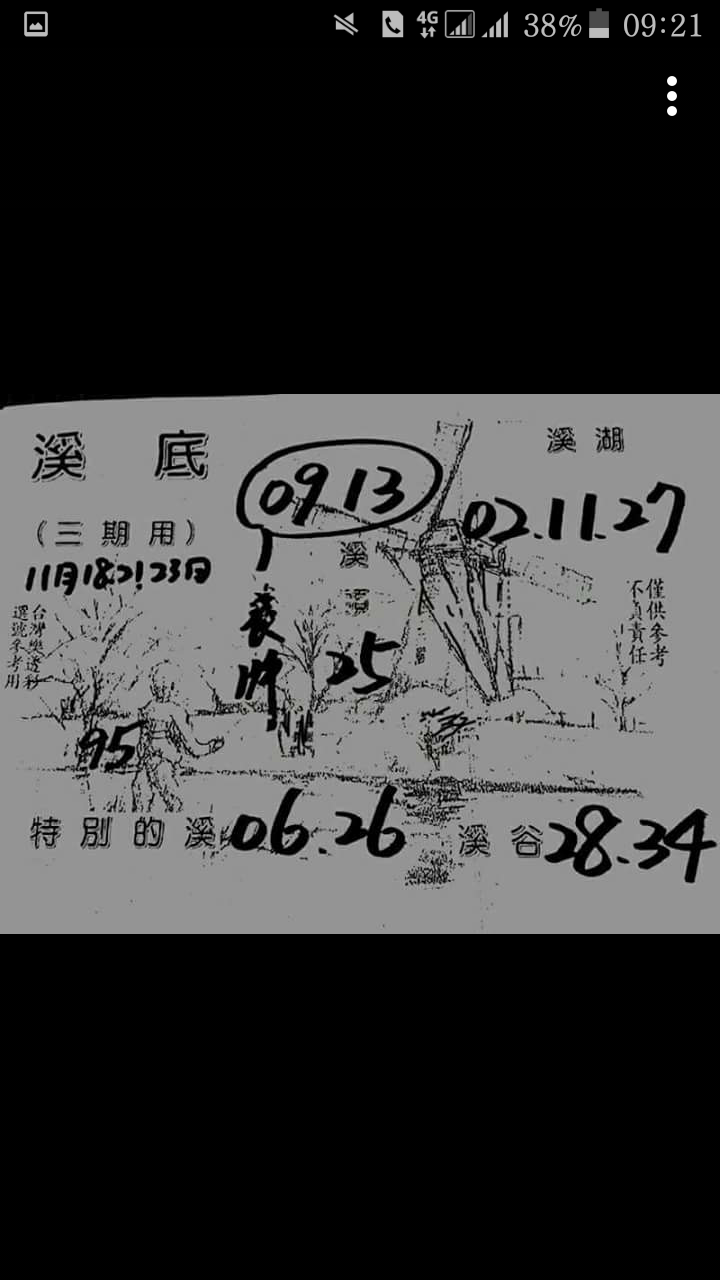 4G 38% 09:21
溪底
溪湖
09.13
02.11.27
（三期用）
11月18.21.23日
溪
25
台灣樂透彩
選號參考用
僅供參考
不負責任
95
32
特別的溪
06.26
溪谷
28.34